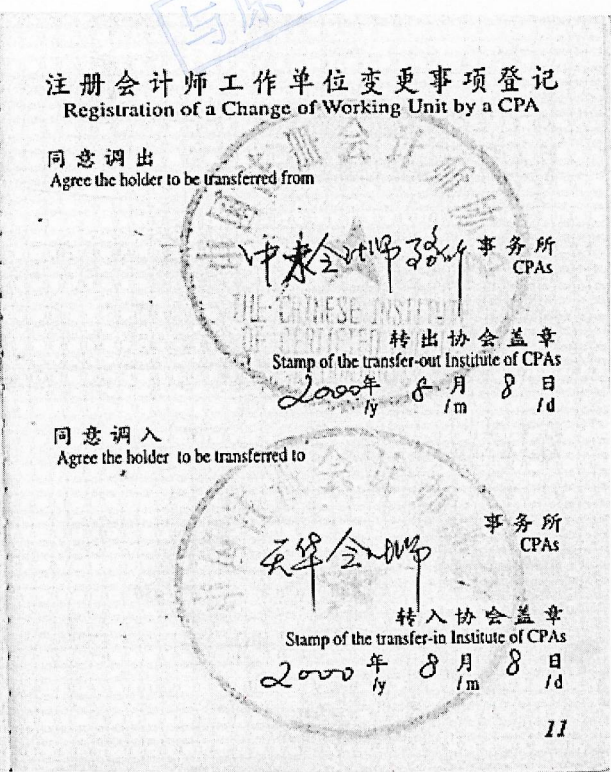 与原
注册会计师工作单位变更事项登记
Registration of a Change of Working Unit by a CPA
同意调出
Agree the holder to be transferred from
会计师 事务所
CPAs
中国注册会计师协会
THE CHINESE INSTITUTE
OF CERTIFIED
转出协会盖章
Stamp of the transfer-out Institute of CPAs
2000年 8月 8日
/y /m /d
同意调入
Agree the holder to be transferred to
天华会计师 事务所
CPAs
转入协会盖章
Stamp of the transfer-in Institute of CPAs
2000年 8月 8日
/y /m /d
11